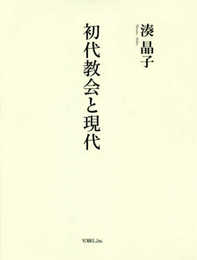 初代教会と現代
湊 晶子
YOBEL,Inc.